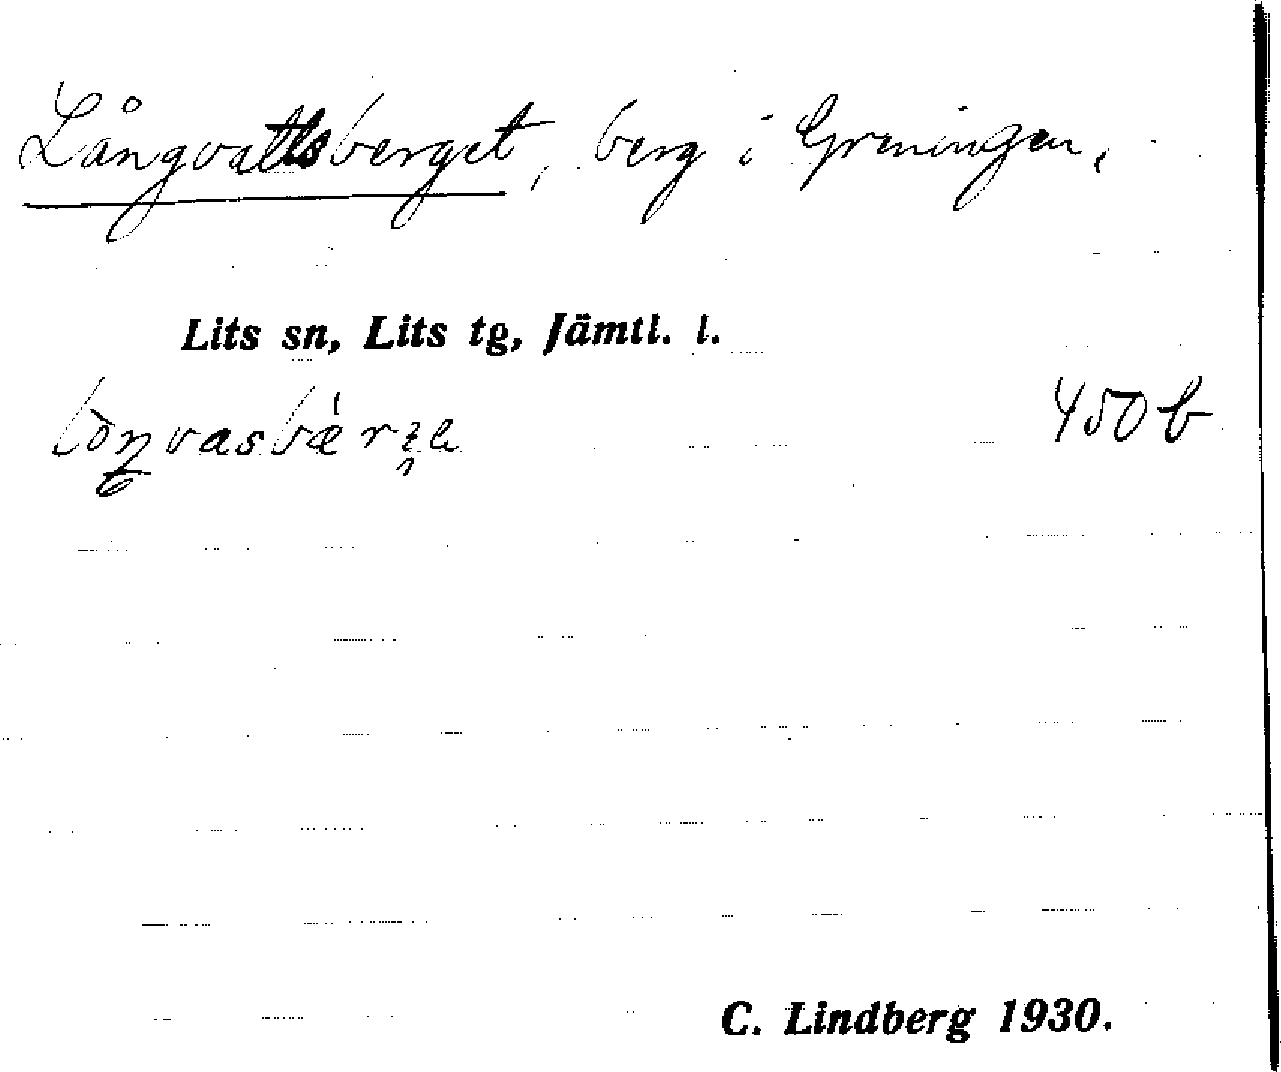 Långvattsberget, berg i Greningen,
Lits sn, Lits tg, Jämtl. l.
450 b
C. Lindberg 1930.